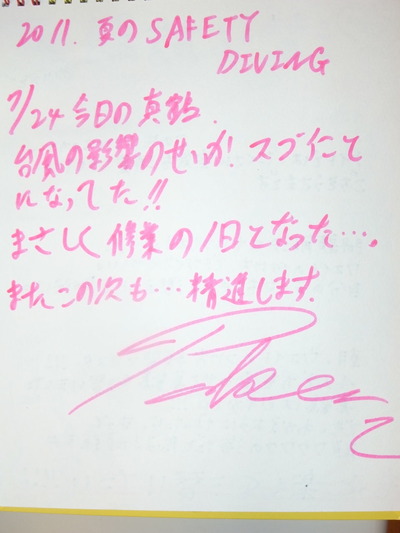 2011. 夏の SAFETY
DIVING
7/24 今日の真鶴.
台風の影響のせいか! スゴイこと
になってた!!
まさしく修業の1日となった…。
またこの次も…精進します.